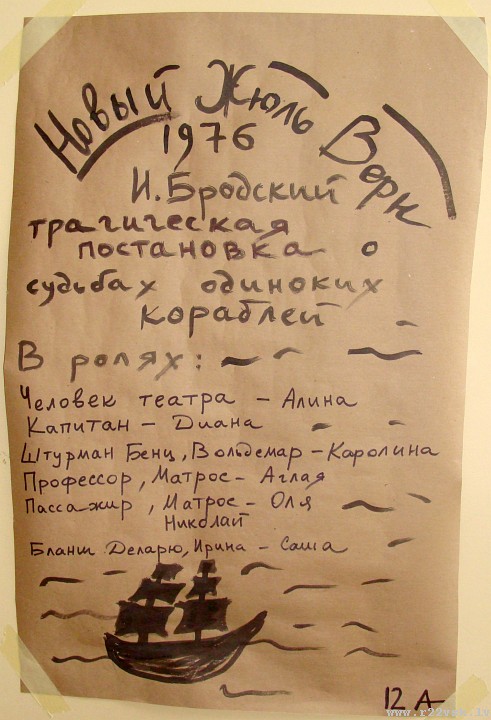 Новый Жюль Верн
1976
И. Бродский
трагическая
постановка о
судьбах одиноких
кораблей
В ролях:
Человек театра - Алина
Капитан - Диана
Штурман Бенц, Вольдемар - Каролина
Профессор, Матрос - Аглая
Пассажир, Матрос - Оля
Николай
Бланш Деларю, Ирина - Саша
12 А